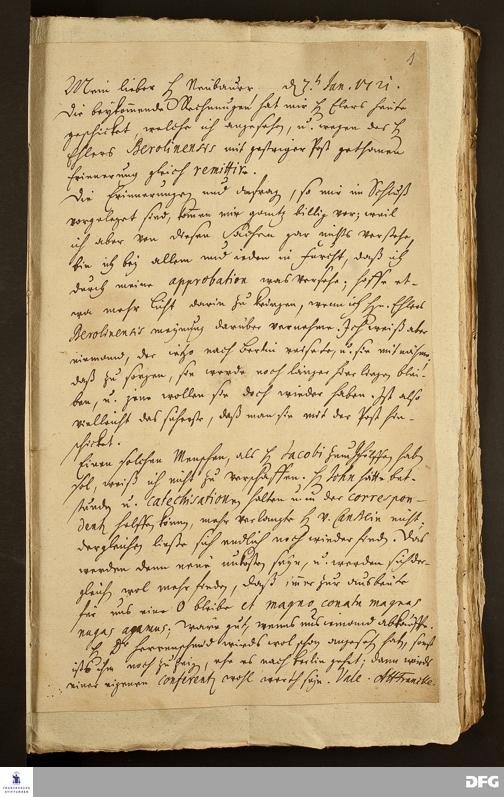 1
Mein lieber H Neubauer d 7. Jan. 1721.
Die beykommende Rechnungen hat mir H Elers heute
geschicket, welche ich angesehen, u. wegen des H
Ehlers Berolinensis mit gestriger Post gethanen
Erinnerung gleich remittire.
Die Erinnerungen und, so mir im Schluß
vorgeleget sind, kommen mir gantz billig vor; weil
ich aber von diesen Sachen gar nichts verstehe
bin ich bey allem und jeden in Furcht, daß ich
durch meine approbation was versehe; hoffe et-
wa mehr Licht darin zu kriegen, wenn ich H. Ehlers
Berolinensis meynung darüber vernehme. Ich weiß aber
niemand, der ietzo nach Berlin reisete, u. sie mitnähme,
daß zu sorgen, sie werde noch länger hier liegen blei-
ben, u. jene wollen sie doch wieder haben. Ist also
vielleicht das sicherste, daß man sie mit der Post hin-
schicket.
Einen solchen Menschen, als H Jacobi haben
sol, weiß ich nicht zu verschaffen. H John hätte bet-
stunden u. catechisationes halten u. in der correspon-
dentz helffen können, mehr verlangte H v. Canstein nicht;
dergleichen ließe sich endlich noch wieder finden. Das
werden denn neue unkosten seyn, u. werden sich der-
gleichen wol mehr finden, daß immer zur ausbeute
für uns eine 0 bleibe et magno conatu magnas
nugas agamus; wäre gut, wenns uns jemand
H D. Herrnschmid wirds wol schon angesehen haben, sonst
ists ihm noch zu zeigen, ehe es nach Berlin gehet; denn wirds
eines eigenen conferentz wohl werth seyn. Vale. AHFrancke.
FRANCKESCHE STIFTUNGEN
DFG